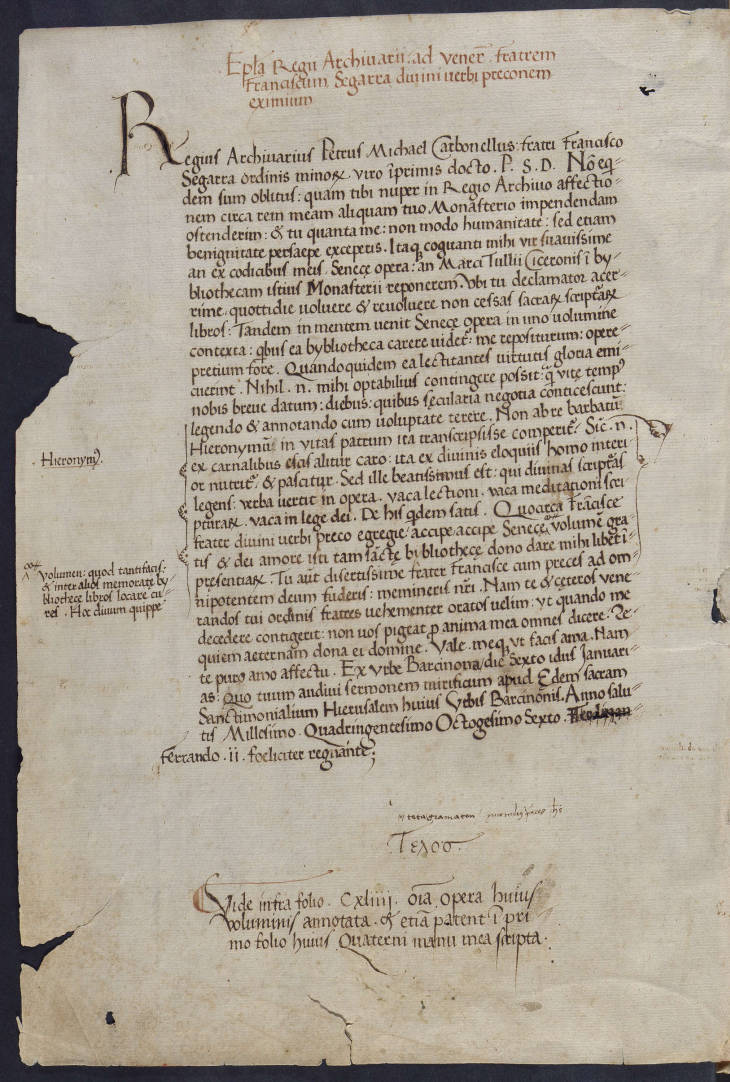 Epła Regii Archivarii ad vener̄. fratrem
Franciscum Segarra divini verbi preconem
eximium
Regius Archivarius Petrus Michael Carbonellus: fratri Francisco
Segarra ordinis minoꝝ. viro īprimis docto. P. S. D. Nō eq-
dem sum oblitus: quam tibi nuper in Regio Archivo affectio-
nem circa rem meam aliquam tuo Monasterio impendendam
ostenderim: & tu quanta me: non modo humanitate: sed etiam
benignitate persaepe exceperis. Itaqꝫ cogitanti mihi vir suavissime
an ex codicibus meis. Senecę opera: an Marci Tullii Ciceronis ī by-
bliothecam istius Monasterii reponerem. Vbi tu declamator acer-
rime. quottidie volvere & revolvere non cessas sacraꝝ scriptᵃꝝ
libros: Tandem in mentem venit Senecę opera in uno volumine
contexta: qbus ea bybliotheca carere videt̄: me repositurum: opere-
pretium fore. Quandoquidem ea lectitantes virtutis gloria emi
cuerint. Nihil .n. mihi optabilius contingere possit: q̄ vitę tempꝰ
nobis breve datum: diebus: quibus sęcularia negotia conticescunt:
legendo & annotando cum voluptate terere. Non ab re barbatū
Hieronymū in vitas patrum ita transcripsisse comperit̄. Sic .n.
ex carnalibus escis alitur caro: ita ex divinis eloquiis homo interi
or nutrit̄ & pascitur. Sed ille beatissimus est: qui divinas scriptᵃs
legens: verba vertit in opera. vaca lectioni. vaca meditationi scri
pturaꝝ. vaca in lege dei. De his qdem satis. Quocirca Frācisce
frater divini verbi preco egregie: accipe accipe Senecę volumē gra-
tis & dei amore isti tam sāctę bibliothecę dono dare mihi libet ī
presentiaꝝ. Tu aūt disertissime frater Francisce cum preces ad om-
nipotentem deum fuderis: memineris nr̄i. Nam te & ceteros vene-
randos tui ordinis fratres vehementer oratos velim: ut quando me
decedere contigerit: non vos pigeat ꝑ anima mea omnes dicere. Re-
quiem aeternam dona ei domine. Vale. meqꝫ ut facis ama. Nam
te puro amo affectu. Ex Vrbe Barcinona, die Sexto idus Januari-
as: quo tuum audivi sermonem mirificum apud Edem sacram
Sanctimonialium Hierusalem huius Vrbis Barcinonis. Anno salu-
tis Millesimo. Quadringentesimo Octogesimo Sexto.
Ferrando .ii. foeliciter regnante;
Hieronymꝰ.
volumen: quod tantifacis:
& inter alios memoratę by-
bliothecę libros locare cu-
res. Hoc divum quippe
tetagramaton
Τελοσ.
Vide infra folio. Cxliiii. oīa opera huius
voluminis annotata. & etiā patent ī pri-
mo folio huius Quaterni manu mea scripta.